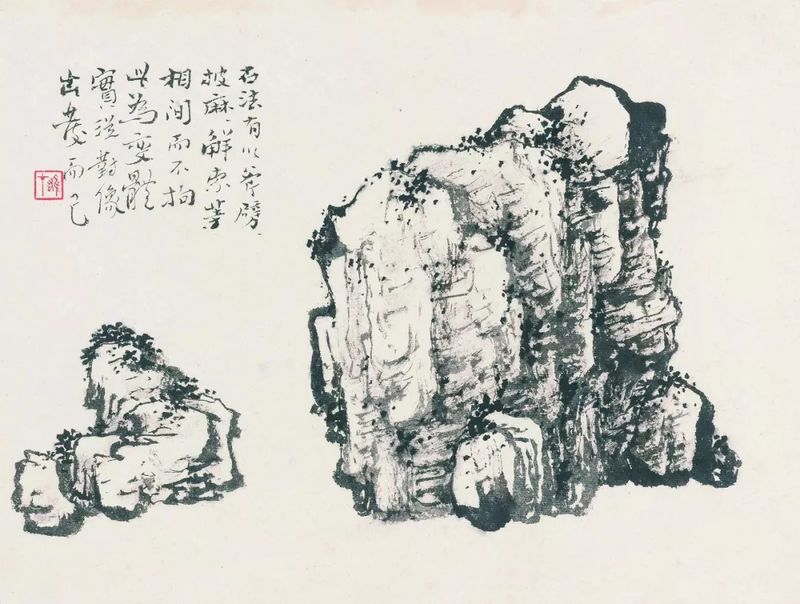 石法有以斧劈、
披麻、解索等
相间而不拘
此為变體
實從對像
出發而已